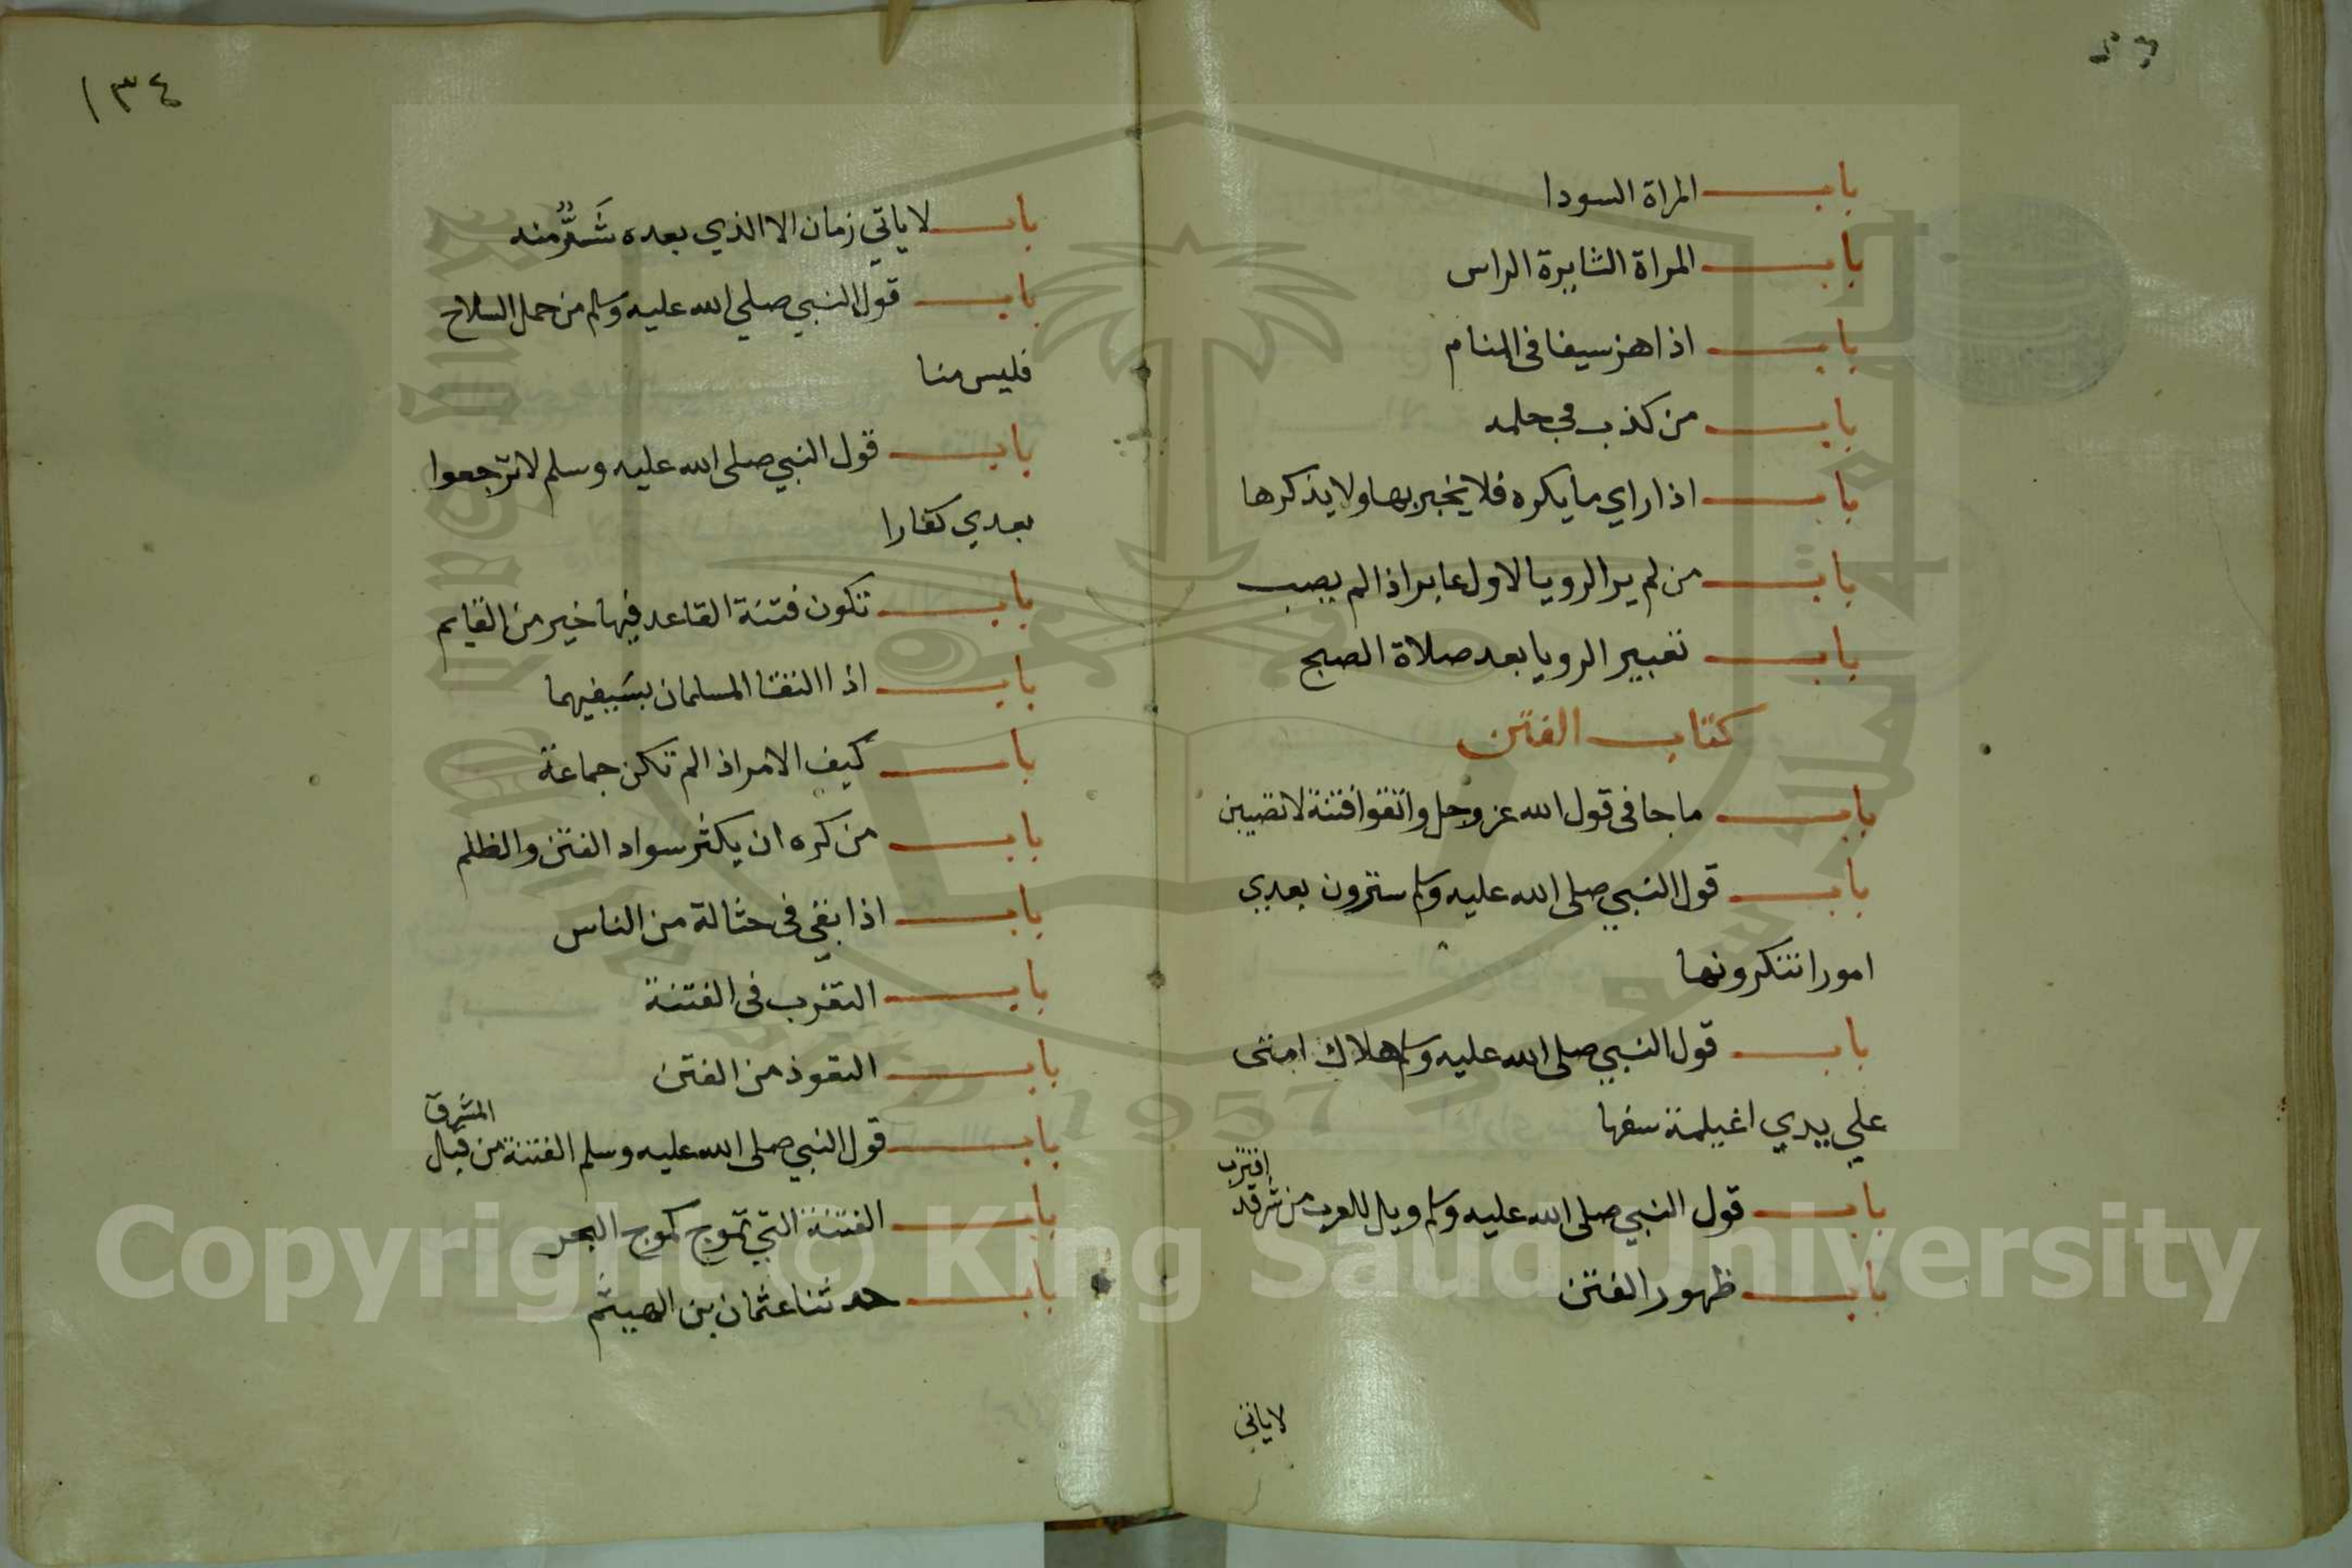 باب المراة السودا
باب المراة الثايرة الراس
باب اذا هز سيفا فى المنام
باب من كذب في حلمه
باب اذا راي ما يكره فلا يخبر بها ولا يذكرها
باب من لم ير الرويا لاول عابر اذا لم يصب
باب تعبير الرويا بعد صلاة الصبح
كتاب الفتن
باب ما جا فى قول الله عز وجل واتقوا فتنة لا تصيبن
باب قول النبي صلى الله عليه وسلم سترون بعدي
امورا تنكرونها
باب قول النبي صلى الله عليه وسلم هلاك امتى
علي يدي اغيلمة سفها
باب قول النبي صلى الله عليه وسلم ويل للعرب من شر قد اقترب
باب ظهور الفتن
لا ياتي
١٣٤
باب لا ياتي زمان الا الذي بعده شَرٌّ منه
باب قول النبي صلي الله عليه وسلم من حمل السلاح
فليس منا
باب قول النبي صلى الله عليه وسلم لا ترجعوا
بعدي كفارا
باب تكون فتنة القاعد فيها خير من القايم
باب اذا التقا المسلمان بسَيفيهما
باب كيف الامر اذا لم تكن جماعة
باب من كره ان يكثر سواد الفتن والظلم
باب اذا بقي فى حثالة من الناس
باب التعرب فى الفتنة
باب التعوذ من الفتن
باب قول النبي صلى الله عليه وسلم الفتنة من قبل المشرق
باب الفتنة التي تموج كموج البحر
باب حدثنا عثمان بن الهيثم
Copyright © King Saud University
1957